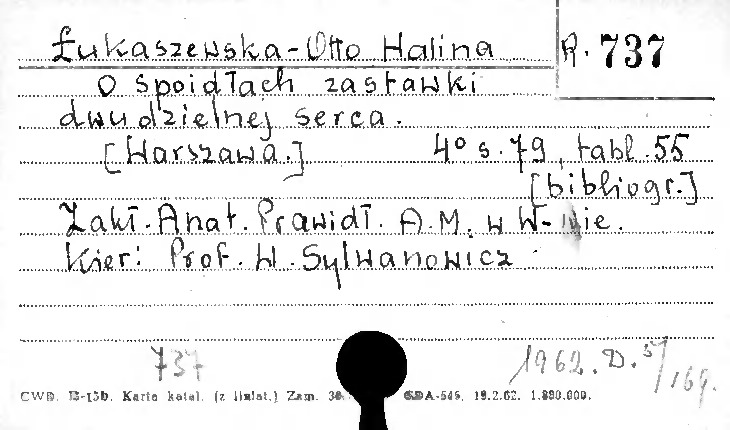 Łukaszewska-Otto Halina R. 737
O spoidłach zastawki
dwudzielnej serca.
[Warszawa.] 4° s. 79, tabl. 55
[bibliogr.]
Zakł. Anat. Prawidł. A.M. w W-wie.
Kier: Prof. W. Sylwanowicz
737 1962. D. 5/169.
CWD. Karta katal. (z liniat.) Zam. GDA-545, 19.2.62. 1.880.000.